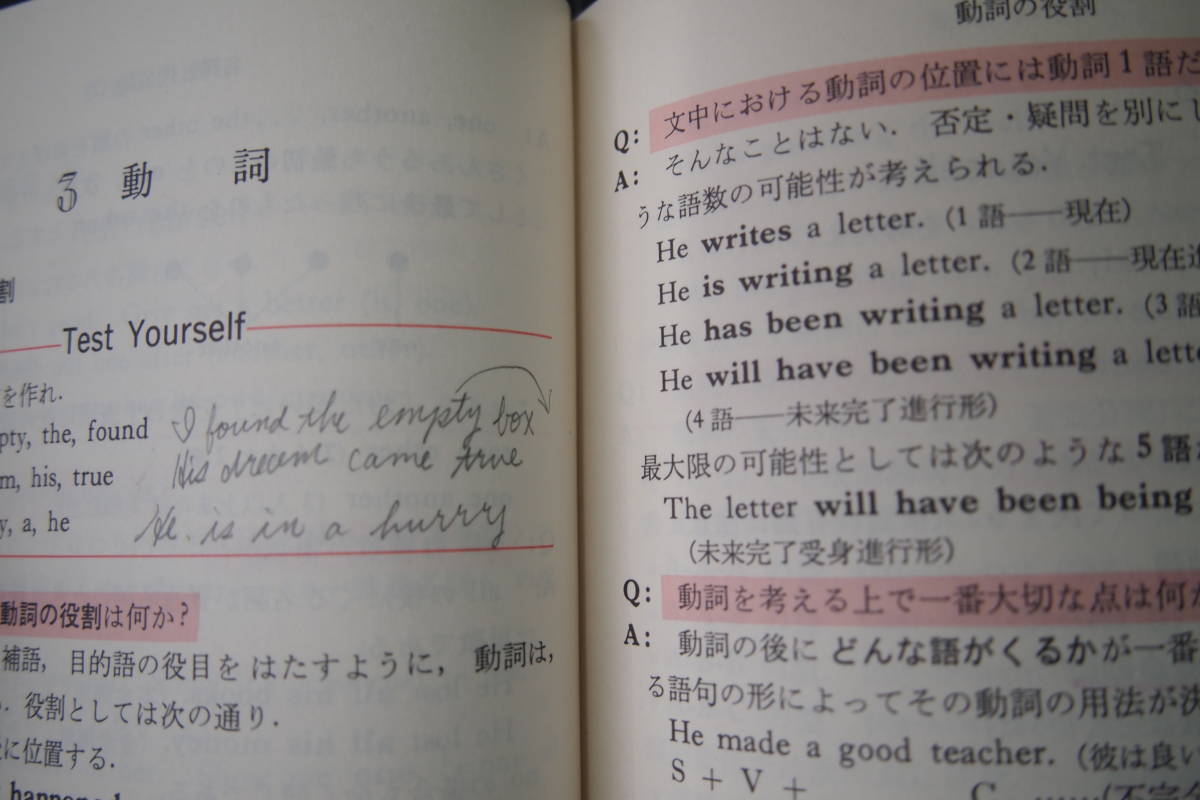 3 動 詞
割
Test Yourself
を作れ.
pty, the, found I found the empty box
m, his, true His dream came true
y, a, he He is in a hurry
動詞の役割は何か?
補語, 目的語の役目を はたすように, 動詞は,
. 役割としては次の通り.
に位置する.
happened
動詞の役割
Q: 文中における動詞の位置には動詞1語だ
A: そんなことはない. 否定・疑問を別にし
うな語数の可能性が考えられる.
He writes a letter. (1語——現在)
He is writing a letter. (2語——現在進
He has been writing a letter. (3語
He will have been writing a lette
(4語——未来完了進行形)
最大限の可能性としては次のような5語
The letter will have been being
(未来完了受身進行形)
Q: 動詞を考える上で一番大切な点は何か
A: 動詞の後に どんな語がくるかが一番
る語句の形によってその動詞の用法が決
He made a good teacher. (彼は良い
S + V + C ……(不完全